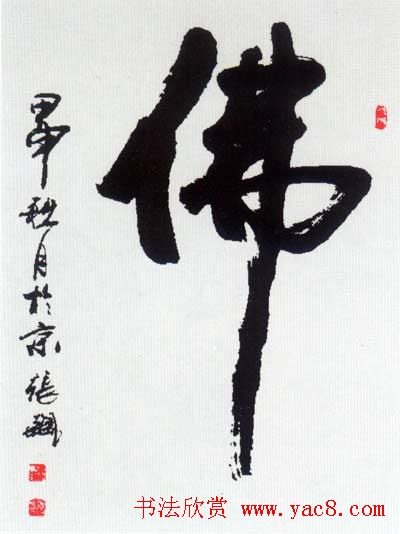 佛
甲申秋月於京 張
书法欣赏 www.yac8.com